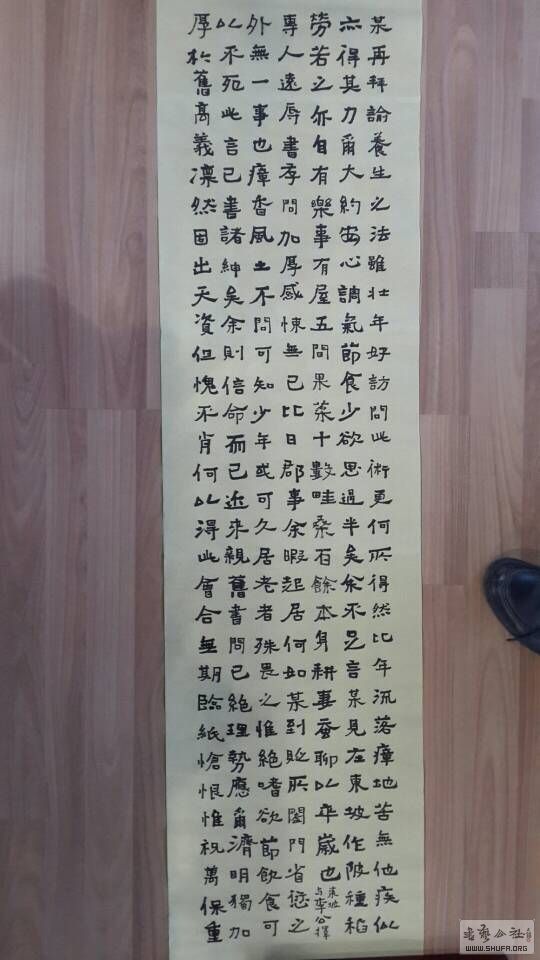 某再拜諭養生之法雖壯年好訪問此術更何所得然比年流落瘴地苦無他疾似
亦得其力爾大約安心調氣節食少欲思過半矣余不足言某見在東坡作陂種稻
勞若之亦自有樂事有屋五間果菜十數畦桑石餘本身耕妻蚕聊以卒歲也
東坡
与李公擇
專人遠辱書存問加厚感悚無已比日郡事余暇起居何如某到貶所闔門省愆之
外無一事也瘴香風土不問可知少年或可久居老者殊畏之惟絕嗜欲節飲食可
以不死此言已書諸紳矣余則信命而已近來親舊書問已絕理勢應爾濟明獨加
厚於舊高義凜然固出天資但愧不肖何以得此會合無期臨紙愴恨惟祝萬保重
WWW.SHUFA.ORG